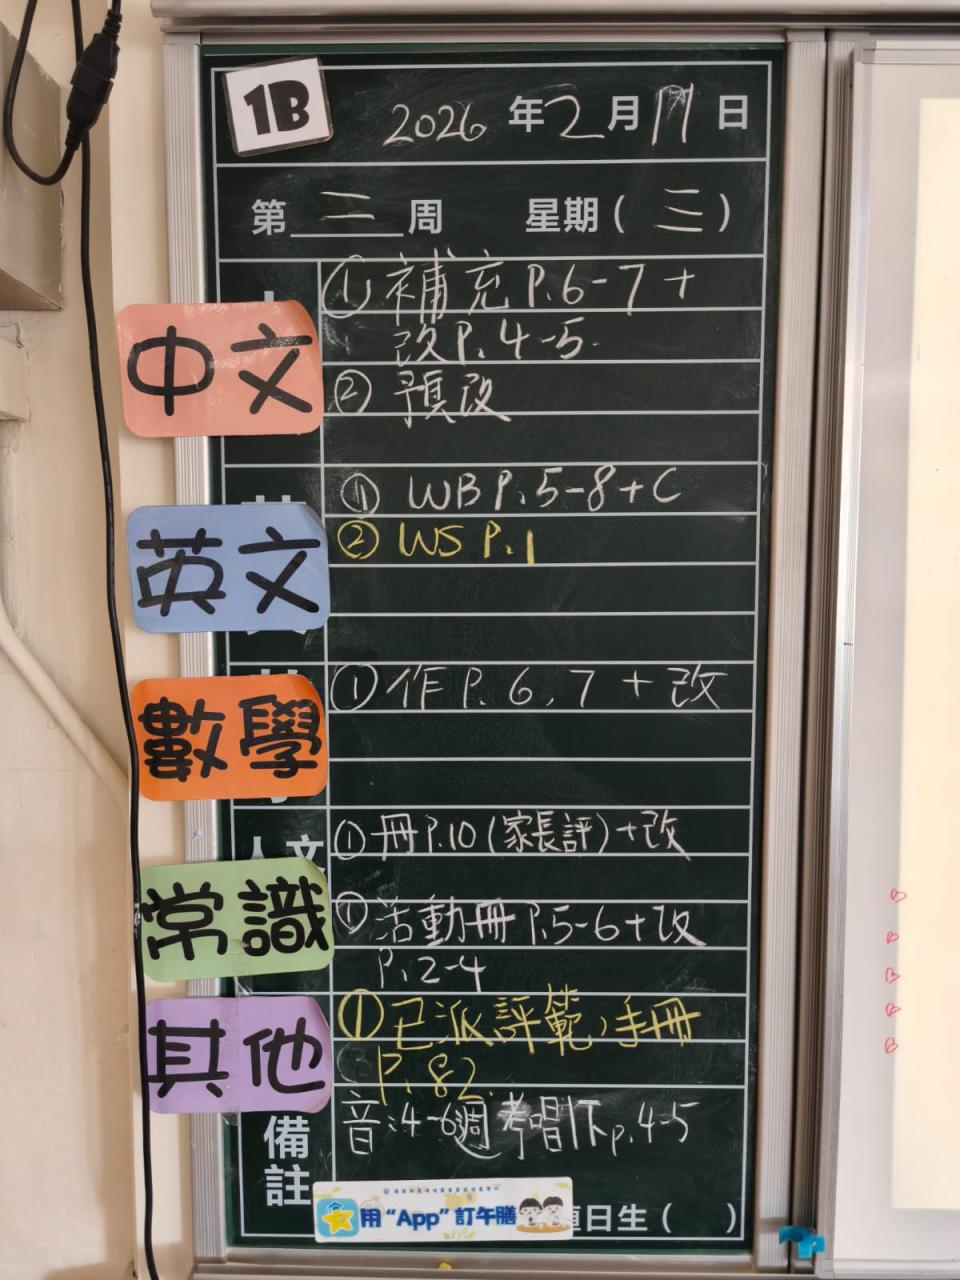 1B
2026 年 2 月 11 日
第 二 周 星期 ( 三 )
中文
① 補充 P.6-7 +
改 P. 4-5.
② 預改
英文
① WB P. 5-8 + C
② WS P. 1
數學
① 作 P. 6, 7 + 改
人文
① 冊 P.10 (家長評) + 改
常識
① 活動冊 P.5-6 + 改
P. 2-4
其他
① 已派評範, 手冊
P. 82.
備註
音:4-6週考唱 下 p. 4-5
用 “App” 訂午膳
日生 ( )